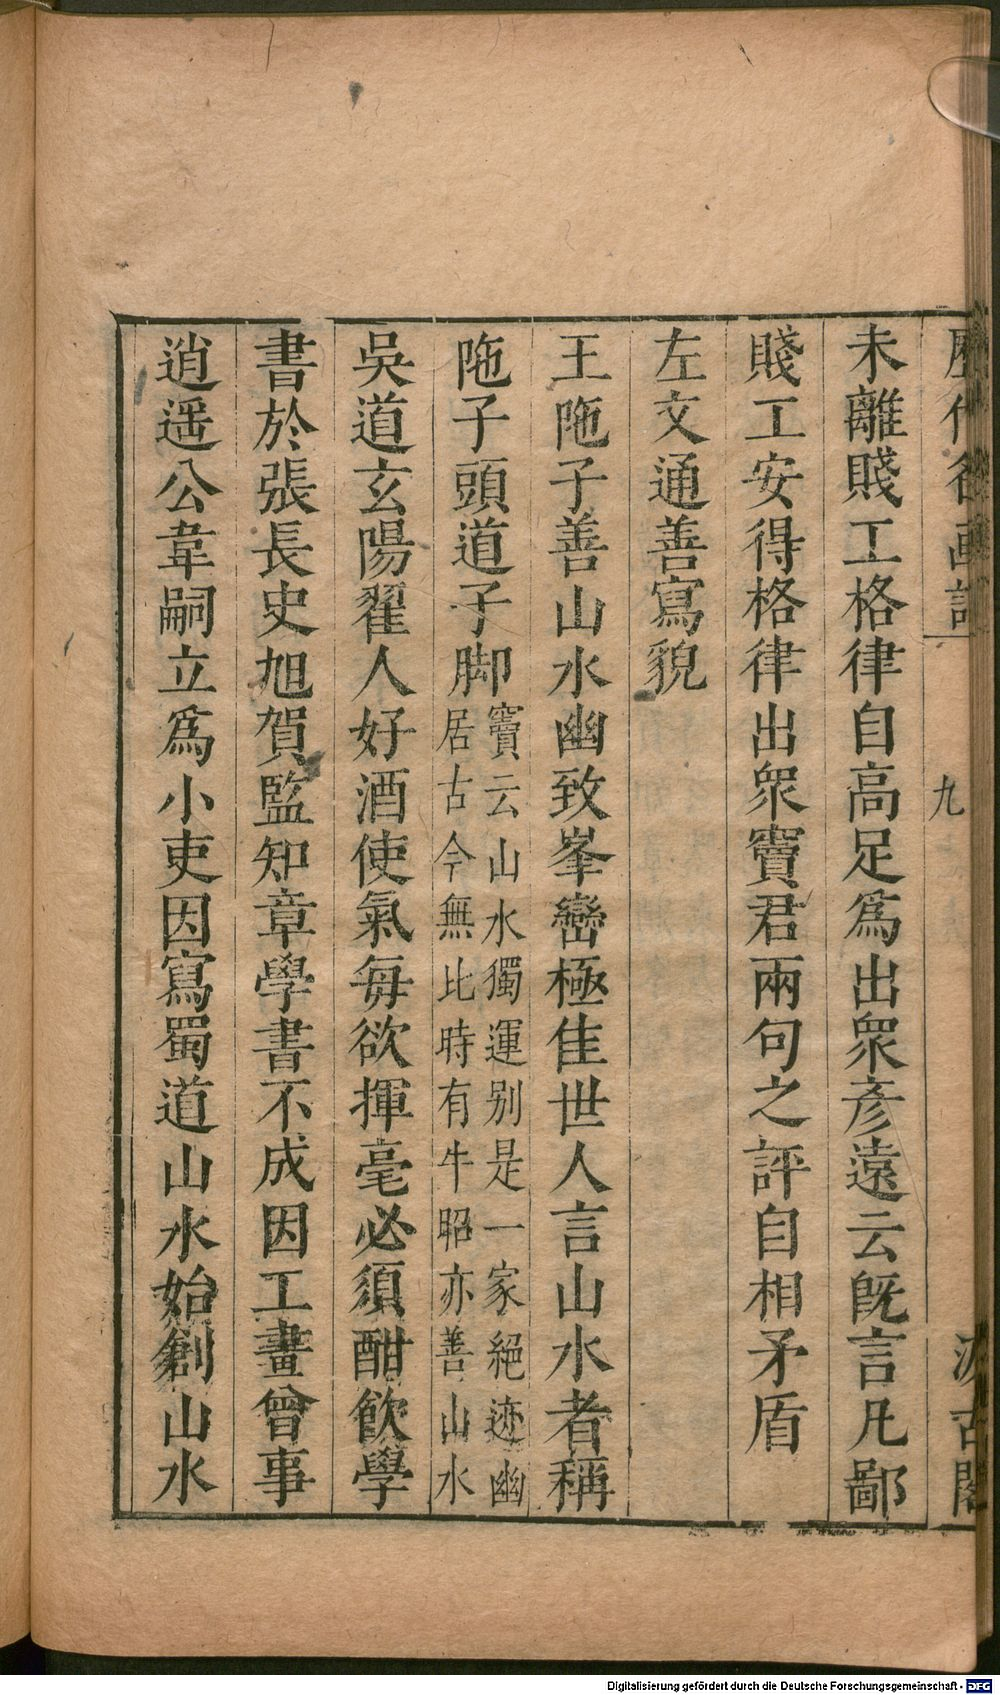 歷代名画記
九
汲古閣
未離賤工格律自高足爲出衆彦遠云旣言凡鄙
賤工安得格律出衆竇君兩句之評自相矛盾
左文通善寫貌
王陁子善山水幽致峯巒極佳世人言山水者稱
陁子頭道子脚竇云山水獨運别是一家絕迹幽
居古今無比時有牛昭亦善山水
吳道玄陽翟人好酒使氣每欲揮毫必須酣飲學
書於張長史旭賀監知章學書不成因工畫曾事
逍遥公韋嗣立爲小吏因寫蜀道山水始創山水
Digitalisierung gefördert durch die Deutsche Forschungsgemeinschaft - DFG